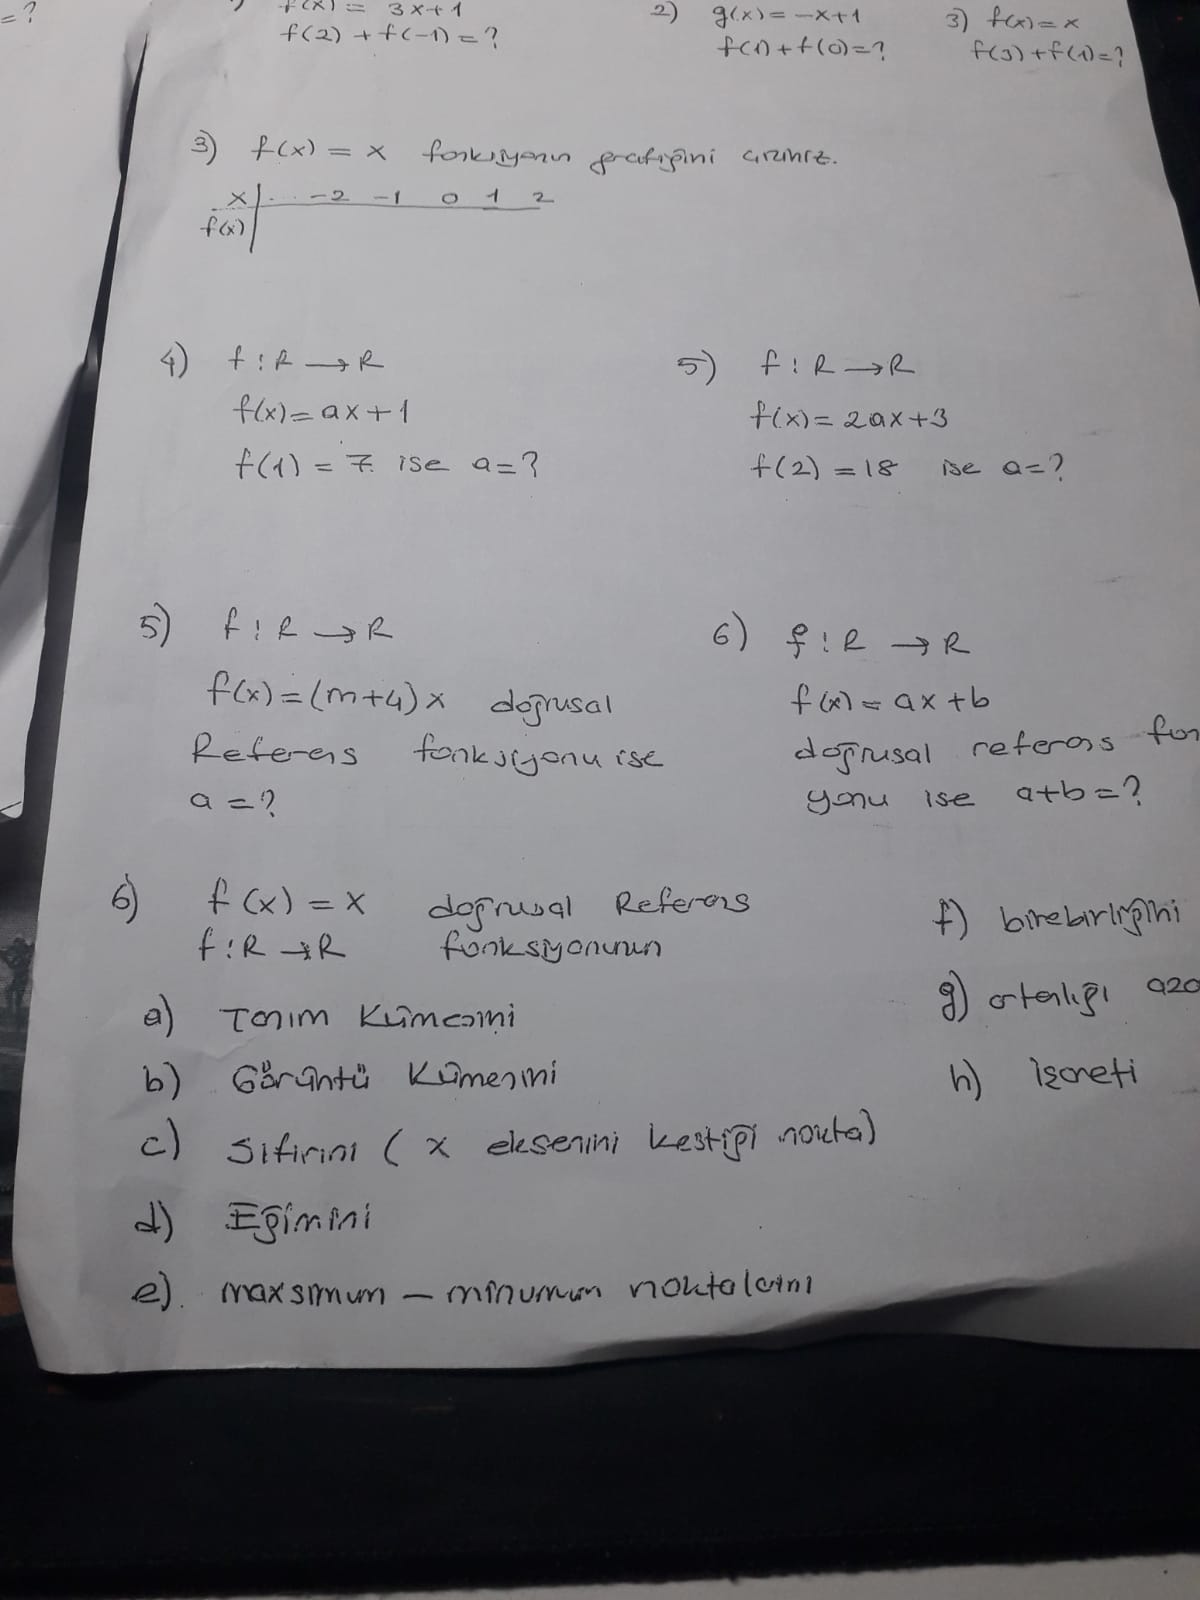 = ?
f(x) = 3x+1
f(2) + f(-1) = ?
2) g(x) = -x+1
f(1) + f(0) = ?
3) f(x) = x
f(3) + f(1) = ?
3) f(x) = x fonksiyonun grafiğini çiziniz.
x ... -2 -1 0 1 2
f(x)
4) f : R → R
f(x) = ax+1
f(1) = 7 ise a = ?
5) f : R → R
f(x) = 2ax+3
f(2) = 18 ise a = ?
5) f : R → R
f(x) = (m+4)x doğrusal
Referans fonksiyonu ise
a = ?
6) f : R → R
f(x) = ax+b
doğrusal referans fon
yonu ise a+b = ?
6) f(x) = x doğrusal Referans
f : R → R fonksiyonunun
a) Tanım Kümesini
b) Görüntü Kümesini
c) Sıfırını ( x eksenini kestiği nokta)
d) Eğimini
e) maxsimum - minumum noktalarını
f) birebirliğini
g) artanlığı aza
h) İşareti